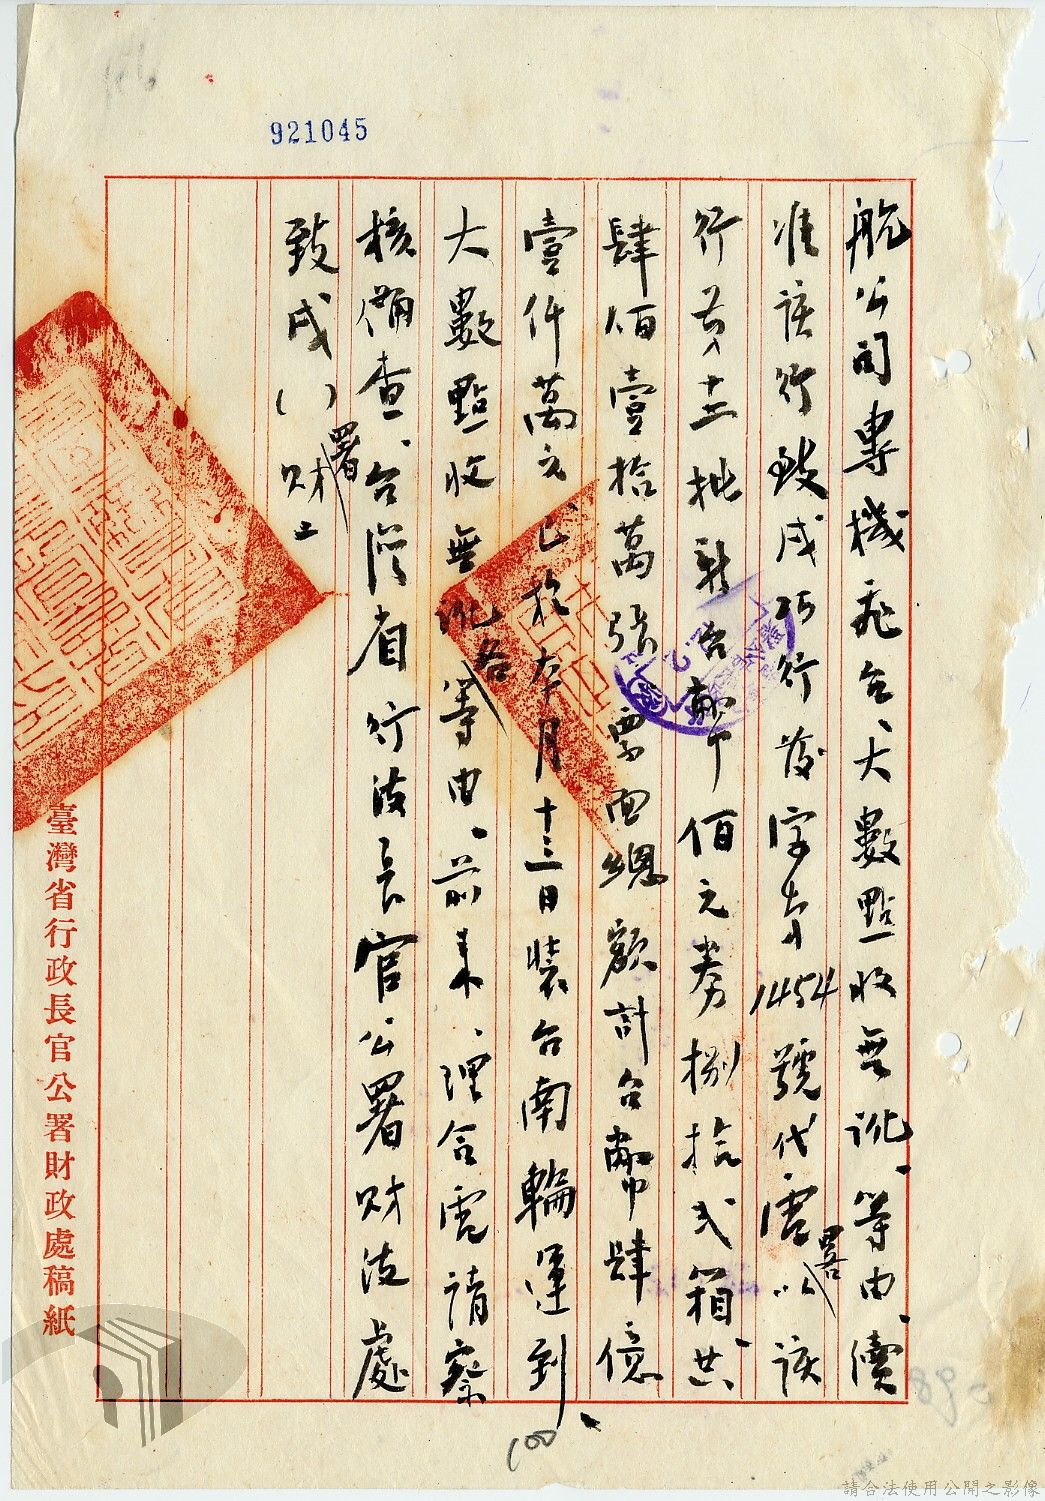 921045
航公司專機飛台、大數點收無訛、等由、續
准該行致戌巧行發字第1454號代電畧以該
行第十三批新台幣佰元券捌拾弍箱、共
肆佰壹拾萬張票面總額計台幣肆億
壹仟萬元、已於本月十三日裝台南輪運到、
大數點收無訛各等由、前來、理合電請察
核備查、台灣省行政長官公署財政處
致戌（）署財二
臺灣省行政長官公署財政處稿紙
請合法使用公開之影像